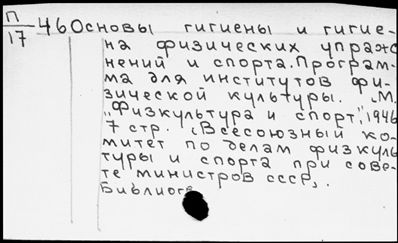 П/17 46 Основы гигиены и гигие-
на физических упраж
нений и спорта. Програм-
ма для институтов фи-
зической культуры. М.
„Физкультура и спорт", 1946
7 стр. (Всесоюзный ко-
митет по делам физкуль
туры и спорта при сове-
те министров ссср).
Библиогр